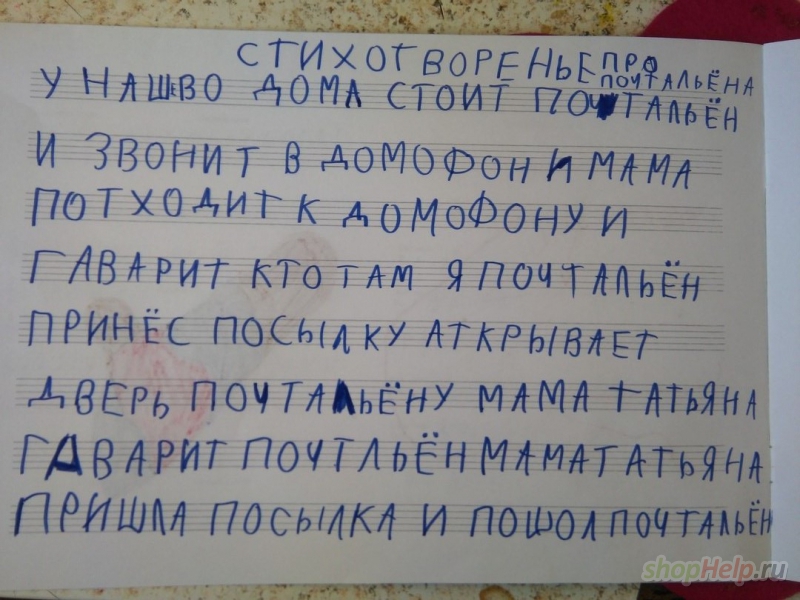 СТИХОТВОРЕНЬЕ ПРО ПОЧТАЛЬЁНА
У НАШЕВО ДОМА СТОИТ ПОЧТАЛЬЁН
И ЗВОНИТ В ДОМОФОН И МАМА
ПОТХОДИТ К ДОМОФОНУ И
ГАВАРИТ КТО ТАМ Я ПОЧТАЛЬЁН
ПРИНЁС ПОСЫЛКУ АТКРЫВАЕТ
ДВЕРЬ ПОЧТАЛЬЁНУ МАМА ТАТЬЯНА
ГАВАРИТ ПОЧТЛЬЁН МАМА ТАТЬЯНА
ПРИШЛА ПОСЫЛКА И ПОШОЛ ПОЧТАЛЬЁН
shopHelp.ru